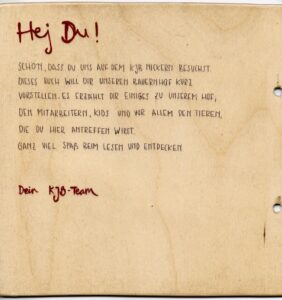 Hej Du!
SCHÖN, DASS DU UNS AUF DEM KJB MICKERN BESUCHST.
DIESES BUCH WILL DIR UNSEREN BAUERNHOF KURZ
VORSTELLEN. ES ERZÄHLT DIR EINIGES ZU UNSEREM HOF,
DEN MITARBEITERN, KIDS UND VOR ALLEM DEN TIEREN,
DIE DU HIER ANTREFFEN WIRST.
GANZ VIEL SPAß BEIM LESEN UND ENTDECKEN
Dein KJB-Team